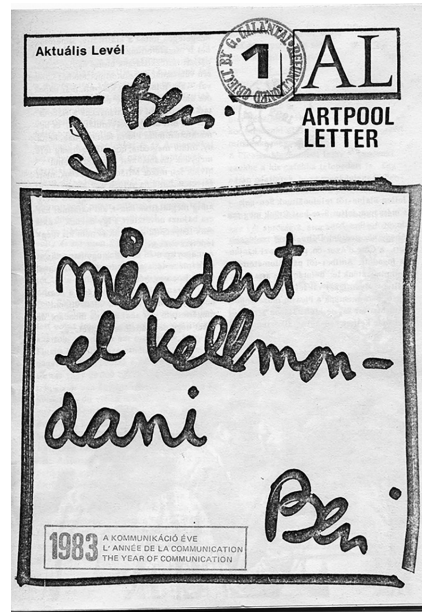 Aktuális Levél
1
AL
ARTPOOL
LETTER
Ben.
mindent
el kellmon-
dani
Ben
1983
A KOMMUNIKÁCIÓ ÉVE
L' ANNÉE DE LA COMMUNICATION
THE YEAR OF COMMUNICATION
OBJECT BY G. GALÁNTAI